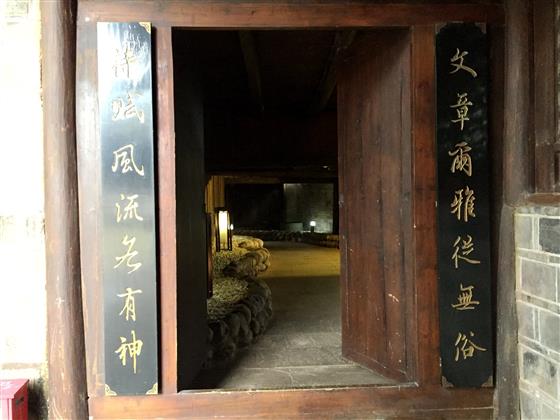 文章爾雅從無俗
詩賦風流各有神